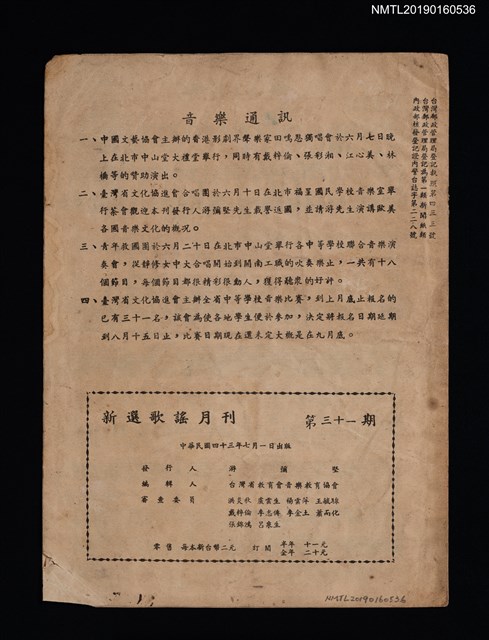 NMTL20190160536
音樂通訊
一、中國文藝協會主辦的香港影劇界聲樂家田鳴恩獨唱會於六月七日晚
上在北市中山堂大禮堂舉行，同時有戴梓倫、張彩湘、江心美、林
橋等的贊助演出。
二、臺灣省文化協進會合唱團於六月十日在北市福星國民學校音樂室舉
行茶會歡迎本刊發行人游彌堅先生載譽返國，並請游先生演講歐美
各國音樂文化的概況。
三、青年救國團於六月二十日在北市中山堂舉行各中等學校聯合音樂演
奏會，從靜修女中大合唱開始到開南工職的吹奏樂止，一共有十八
個節目，每個節目都很精彩很動人，獲得聽衆的好評。
四、臺灣省文化協進會主辦全省中等學校音樂比賽，到上月底止報名的
已有三十一名，該會為使各地學生便於參加，決定將報名日期延期
到八月十五日止，比賽日期現在還未定大概是在九月底。
新選歌謠月刊　第三十一期
中華民國四十三年七月一日出版
發行人　游彌堅
編輯人　台灣省教育會音樂教育協會
審查委員　洪炎秋　裘雲生　楊雲萍　王毓騵
戴粹倫　李志傳　李金土　蕭而化
張錦鴻　呂泉生
零售　每本新台幣二元　訂閱　半年　十一元
全年　二十元
NMTL20190160536